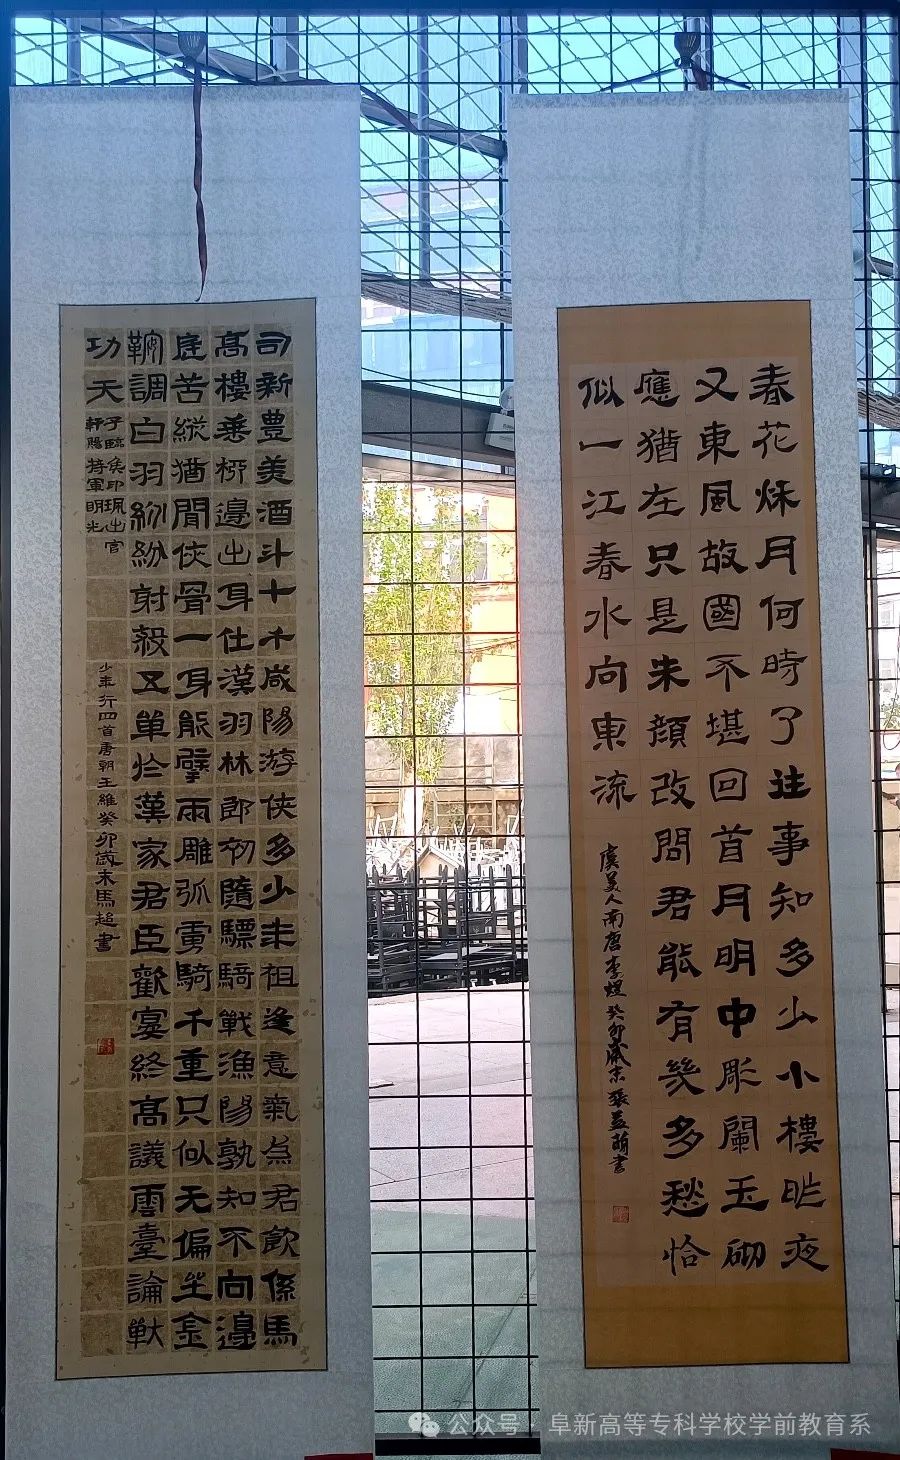 春花秌月何時了往事知多少小樓昨夜
又東風故國不堪回首月明中彫闌玉砌
應猶在只是朱顏改問君能有幾多愁恰
似一江春水向東流
虞美人南唐李煜癸卯歲末張益萌書
司新豊美酒斗十千咸陽游俠多少年祖逢意氣為君飲係馬
高樓垂桺邊出身仕漢羽林郎初隨驃騎戰漁陽孰知不向邊
庭苦縱猶聞俠骨一身能擘兩雕弧虜騎千重只似无偏坐金
鞍調白羽紛紛射殺五單于漢家君臣歡宴終高議雲臺論戰
功天
子臨矦印珮出官
軒賜將軍明光
少年行四首唐朝王維癸卯歲末馬超書
公众号·阜新高等专科学校学前教育系